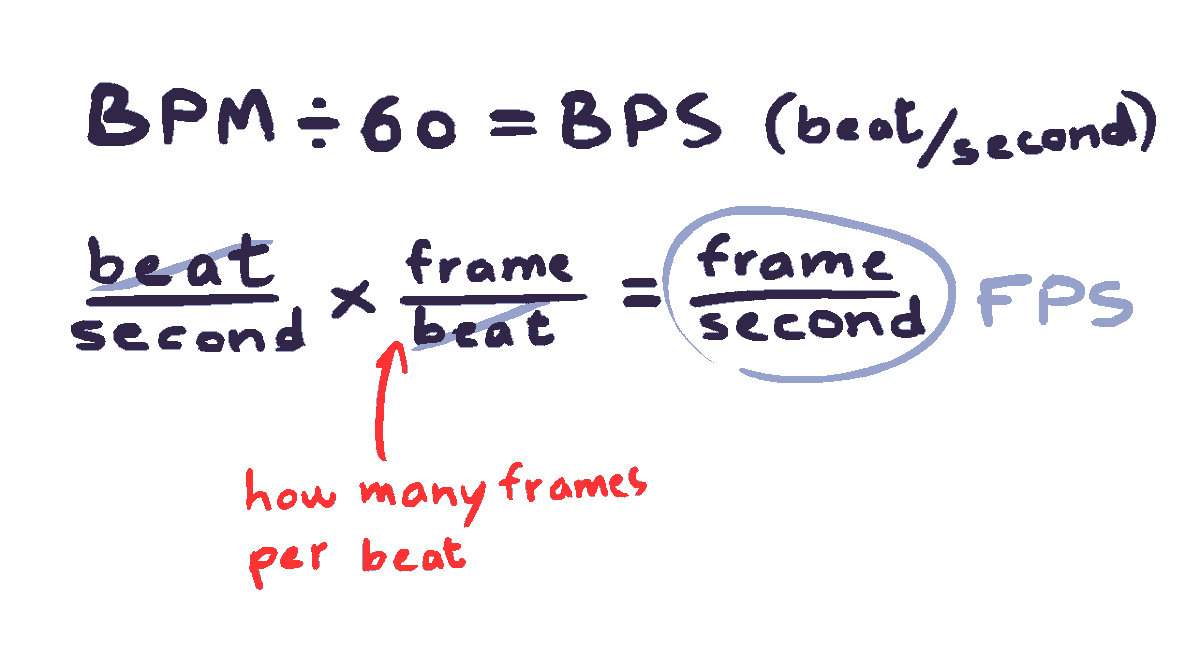 BPM ÷ 60 = BPS (beat/second)
beat/second × frame/beat = frame/second FPS
how many frames
per beat